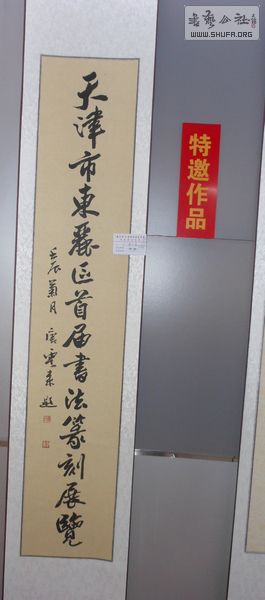 天津市東麗區首届書法篆刻展覽
壬辰菊月
題
特邀作品
書藝公社
WWW.SHUFA.ORG